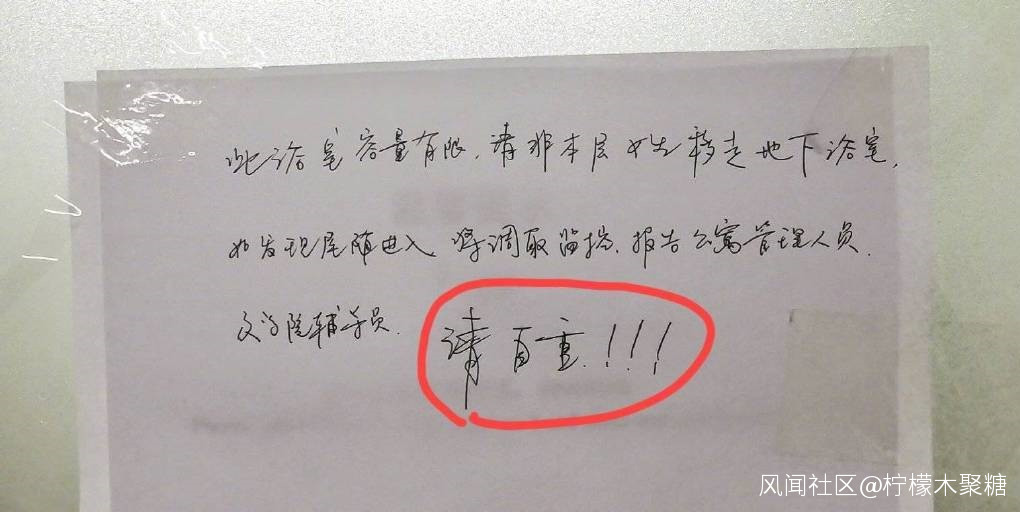 此浴室容量有限,请非本层女生移走地下浴室,
如发现尾随进入 将调取监控、报告公寓管理人员.
及学院辅导员. 请自重!!!
风闻社区@柠檬木聚糖